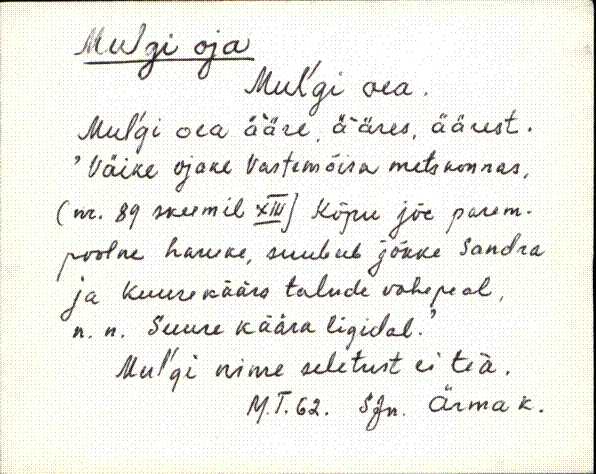 Mulgi oja
Mul'gi oea.
Mul'gi oea ääre, ääres, äärest.
"Väike ojake Vastemõisa metskonnas,
(nr. 89 skeemil XIII) Kõpu jõe parem-
poolne haruke, suubub jõkke Sandra
ja Kuusekäära talude vahepeal,
n. n. Suure käära ligidal."
Mul'gi nime seletust ei teä.
M.T.62. SJn. Ärma k.